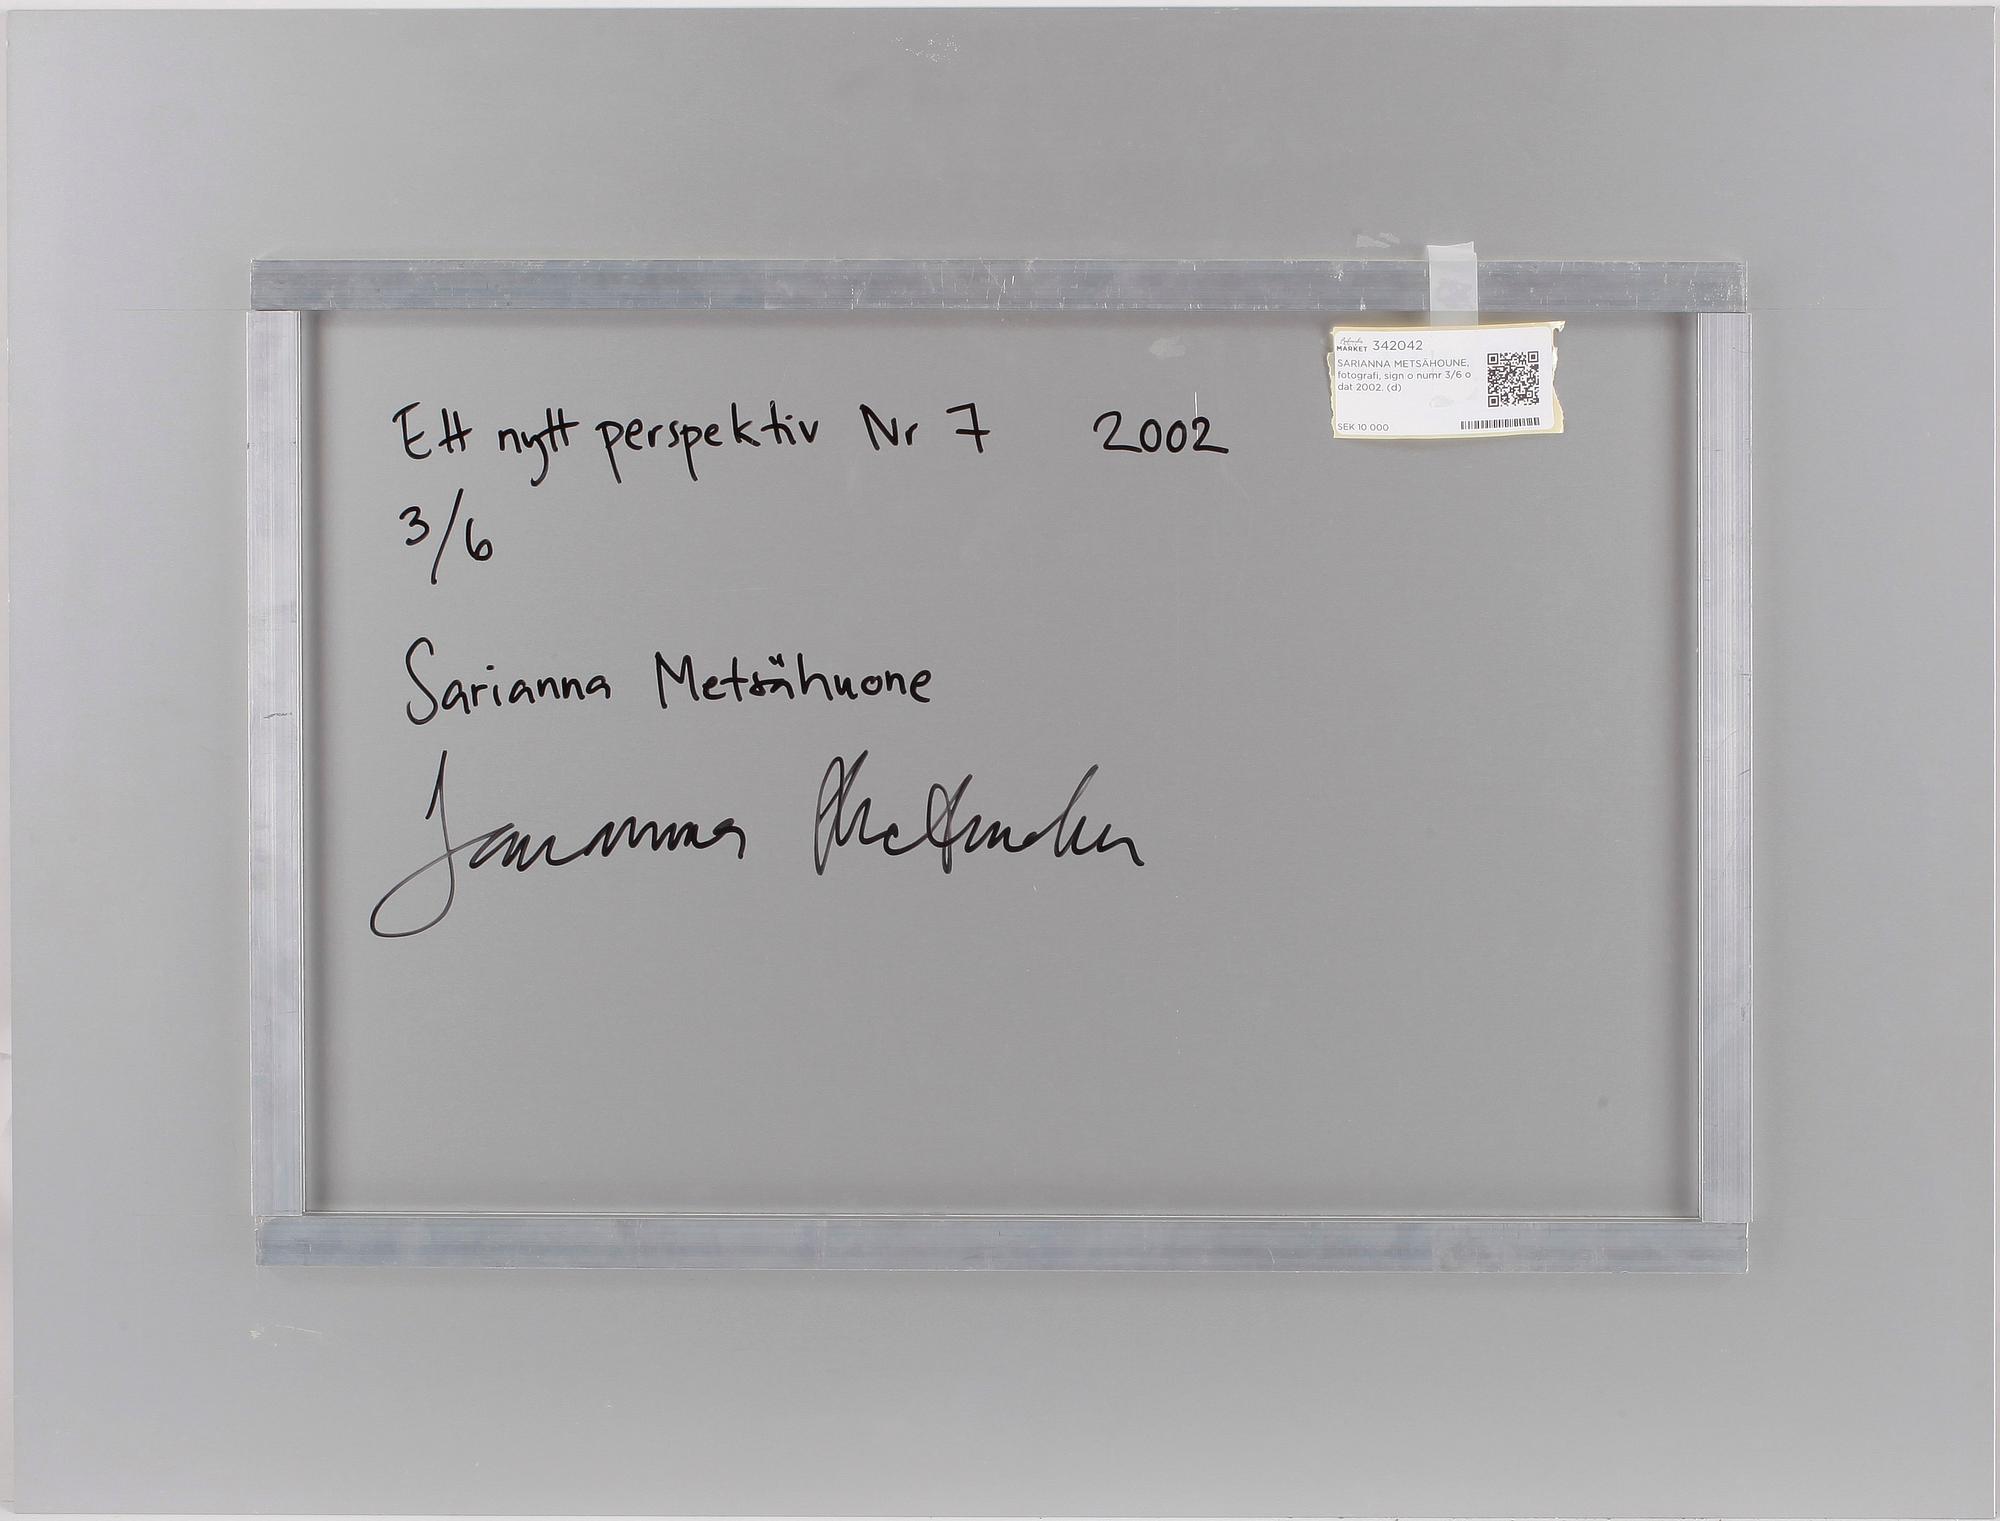 Ett nytt perspektiv Nr 7 2002
3/6
Sarianna Metsähuone
MARKET 342042
SARIANNA METSÄHOUNE,
fotografi, sign o numr 3/6 o
dat 2002. (d)
SEK 10 000